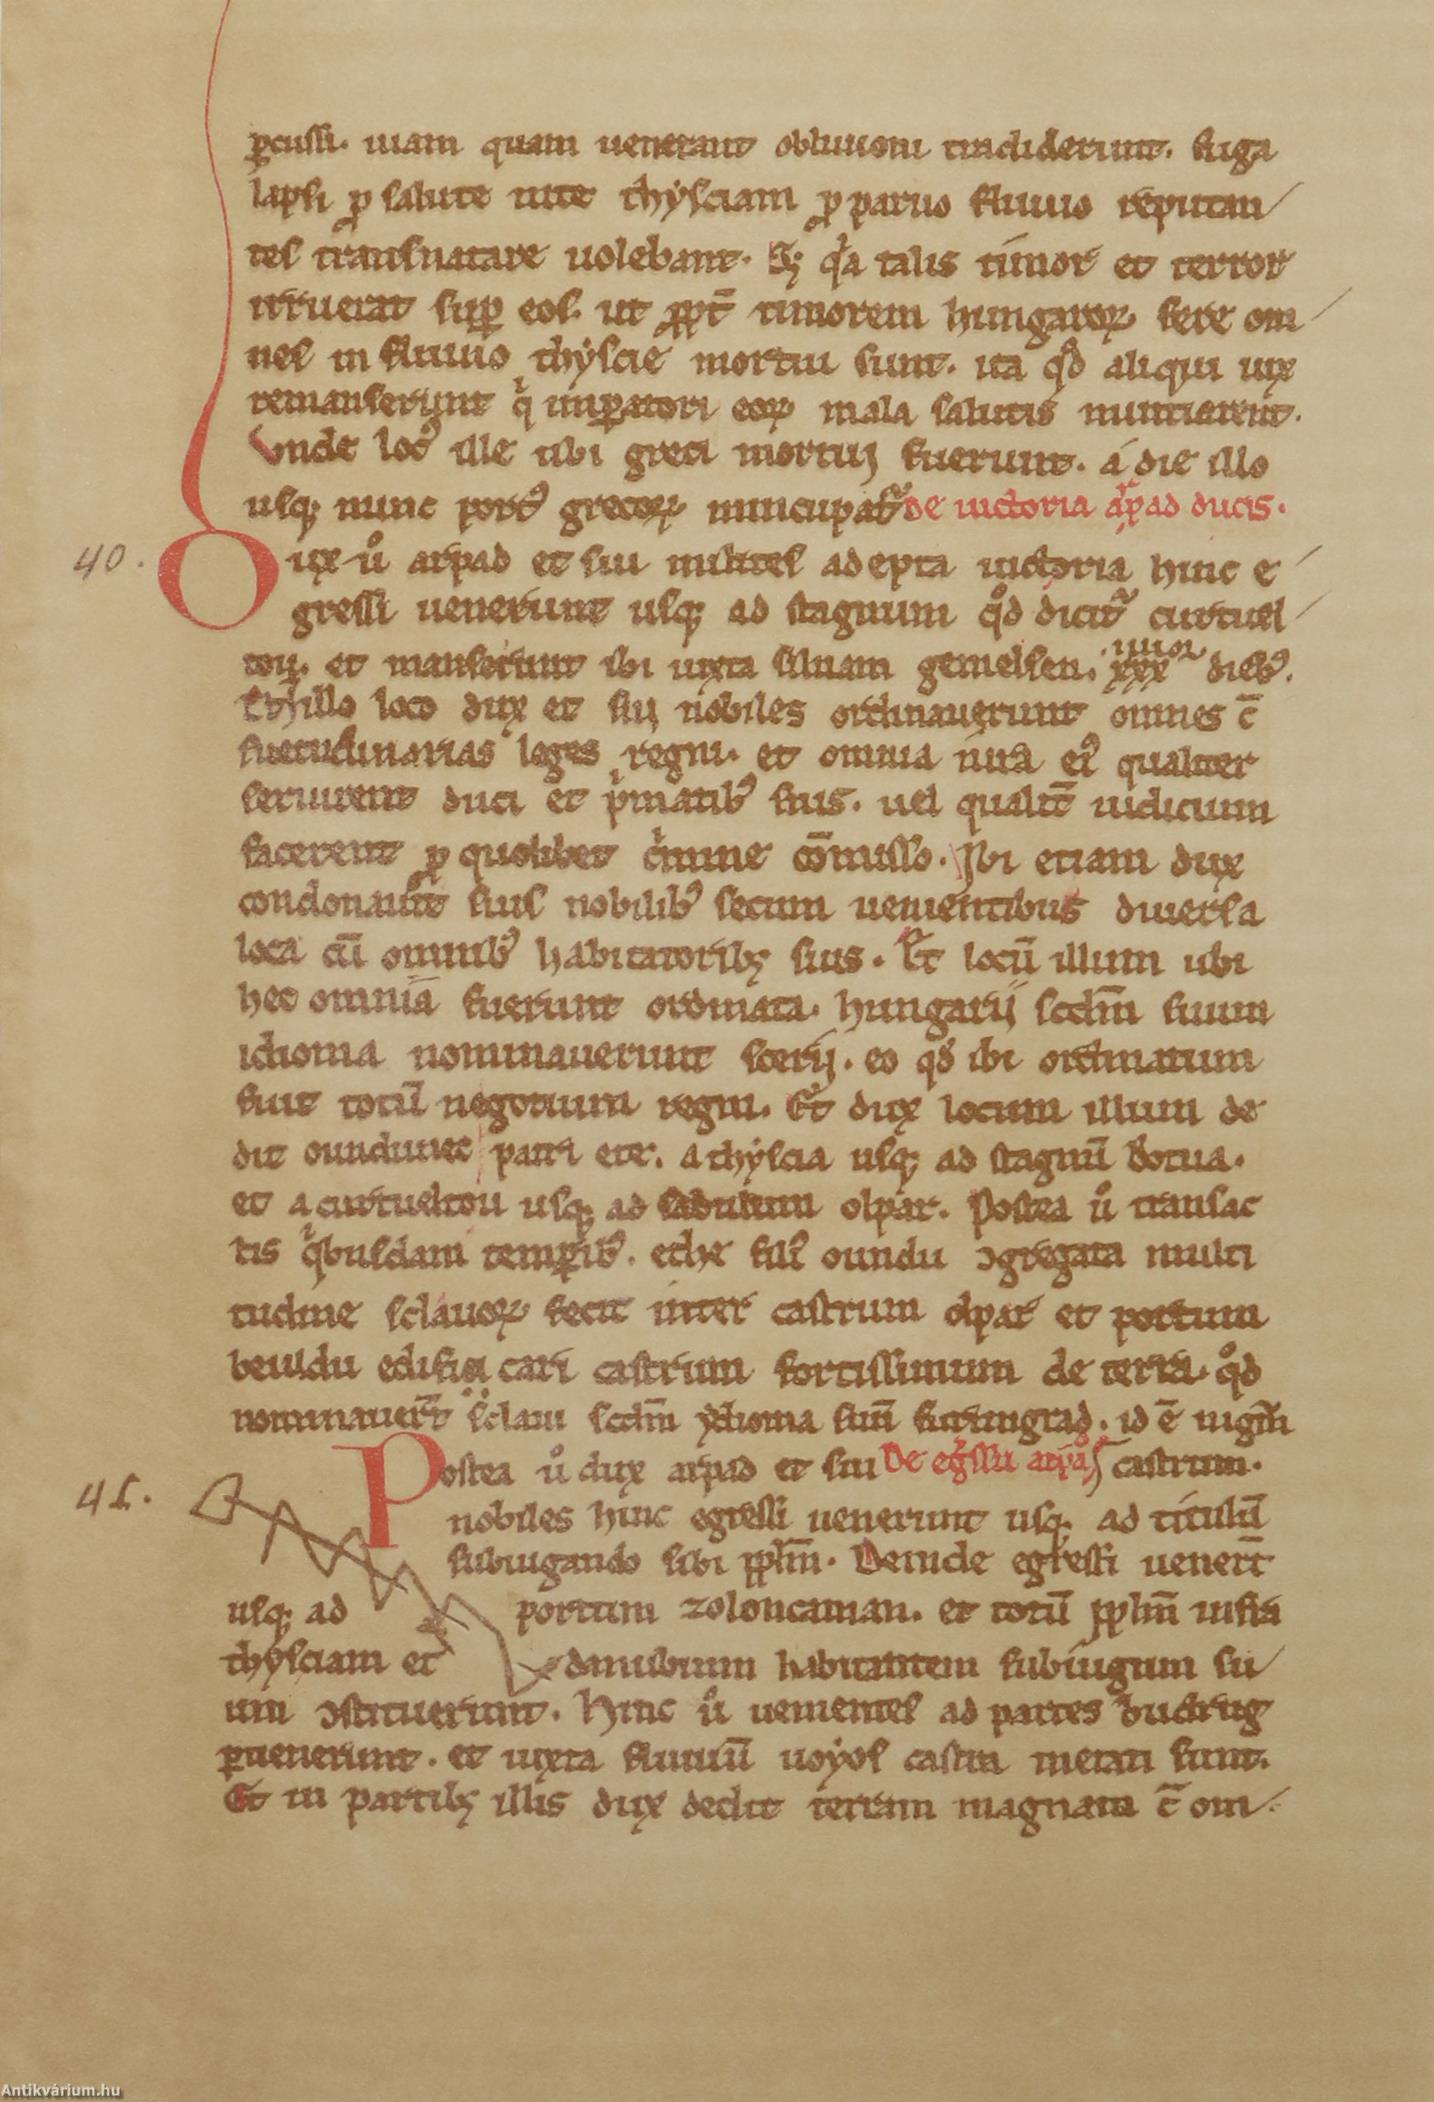 ꝑcussi. uiam quam uenerant obliuioni tradiderunt. fuga
lapsi ꝓ salute uite thysciam ꝓ paruo fluuio reputan
tes transnatare uolebant. Sꝫ qͣa talis timor et terror
irruerat suꝑ eos. ut ꝓpt̄ timorem hungaroꝝ fere om
nes in fluuio thyscie mortui sunt. ita qd̾ aliqui uix
remanserunt qͥ imꝑatori eoꝝ mala salutis nuntiarent.
Vnde locꝰ ille ubi greci mortuj fuerunt. á die illo
usqꝫ nunc portꝰ grecoꝝ nuncupat᷑ De uictoria arpad ducis.
40. Dux uͦ arpad et sui milites adepta uictoria hinc e
gressi uenerunt usqꝫ ad stagnum qd̾ dicit᷑ curtuel
tou. et manserunt ibi iuxta siluam gemelsen. xxx iiiior diebꝰ.
Et in illo loco dux et sui nobiles ordinauerunt omnes c̄
suetudinarias leges regni. et omnia iura eiꝰ qualiter
seruirent duci et pͥmatibꝰ suis. uel qualit̄ iudicium
facerent ꝓ quolibet cͥmine cōmisso. Ibi etiam dux
condonauit suis nobilibꝰ secum uenientibus diuersa
loca cū omnibꝰ habitatoribꝫ suis. Et locū illum ubi
hec omnia fuerunt ordinata. hungarij scdm̄ suum
idioma nominauerunt scerij. eo qd̾ ibi ordinatum
fuit totū negotium regni. Et dux locum illum de
dit oundunec patri ete. a thyscia usqꝫ ad stagnū botua.
et a curtueltou usqꝫ ad sabulum olpar. Postea uͦ transac
tis qͥbusdam temꝑibꝰ. ethe filiꝰ oundu ↄgregata multi
tudine sclauoꝝ fecit inter castrum olpar et portum
beuldu edifi cari castrum fortissimum de terra. qd̾
nominauer̄t sclaui scdm̄ ydioma suū surungrad. id ē nigrū
Postea uͦ dux arpad et sui De egressu arpad castrum.
41. nobiles hinc egressi uenerunt usqꝫ ad titulū
subiugando sibi ꝓplm̄. Deinde egressi uener̄t
usqꝫ ad portum zoloncaman. et totū ꝓplm̄ infra
thysciam et danubium habitantem sub iugum su
um ↄstituerunt. Hinc uͦ uenientes ad partes budrug
ꝑuenerunt. et iuxta fluuiū uoyos castra metati sunt.
Et in partibꝫ illis dux dedit terram magnam c̄ om
Antikvárium.hu